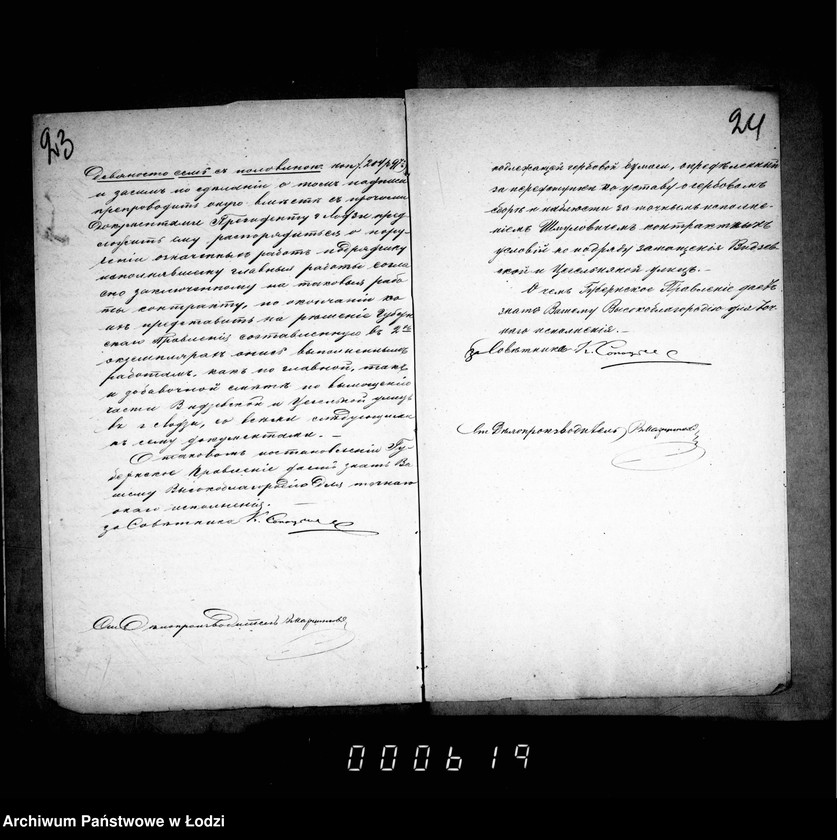 23
Девяносто семь съ половиною коп.
и засимъ по сдѣланіи о томъ надписи
препроводить оную вмѣстѣ съ прочими
документами Президенту г. Лодзи пред
ложить ему распорядиться о пору-
ченіи означенныхъ работъ подрядчику
исполнявшему главныя работы согла
сно заключенному на таковыя рабо
ты контракту, по окончаніи ко
ихъ представить на рѣшеніе Губерн
скаго Правленія составленную въ 2хъ
экземплярахъ опись выполненнымъ
работамъ, какъ по главной, такъ
и добавочной смѣтѣ по вымощенію
части Видзевской и Цегельной улицъ
въ г. Лодзи, со всѣми слѣдующими
къ сему документами. –
О таковомъ постановленіи Гу-
бернское Правленіе даетъ знать Ва
шему Высокоблагородію для точнаго
исполненія.
за Совѣтника К.
Ст. Дѣлопроизводитель
24
подлежащей гербовой бумаги, опредѣленный
за перепечатки по уставу о гербовомъ
сборѣ и наблюсти за точнымъ исполне-
ніемъ Шмуловичемъ контрактныхъ
условій по подряду замощенія Видзев-
ской и Цегельняной улицъ. –
О чемъ Губернское Правленіе даетъ
знать Вашему Высокоблагородію для точ-
наго исполненія. –
за Совѣтника К.
Ст. Дѣлопроизводитель
000619
Archiwum Państwowe w Łodzi